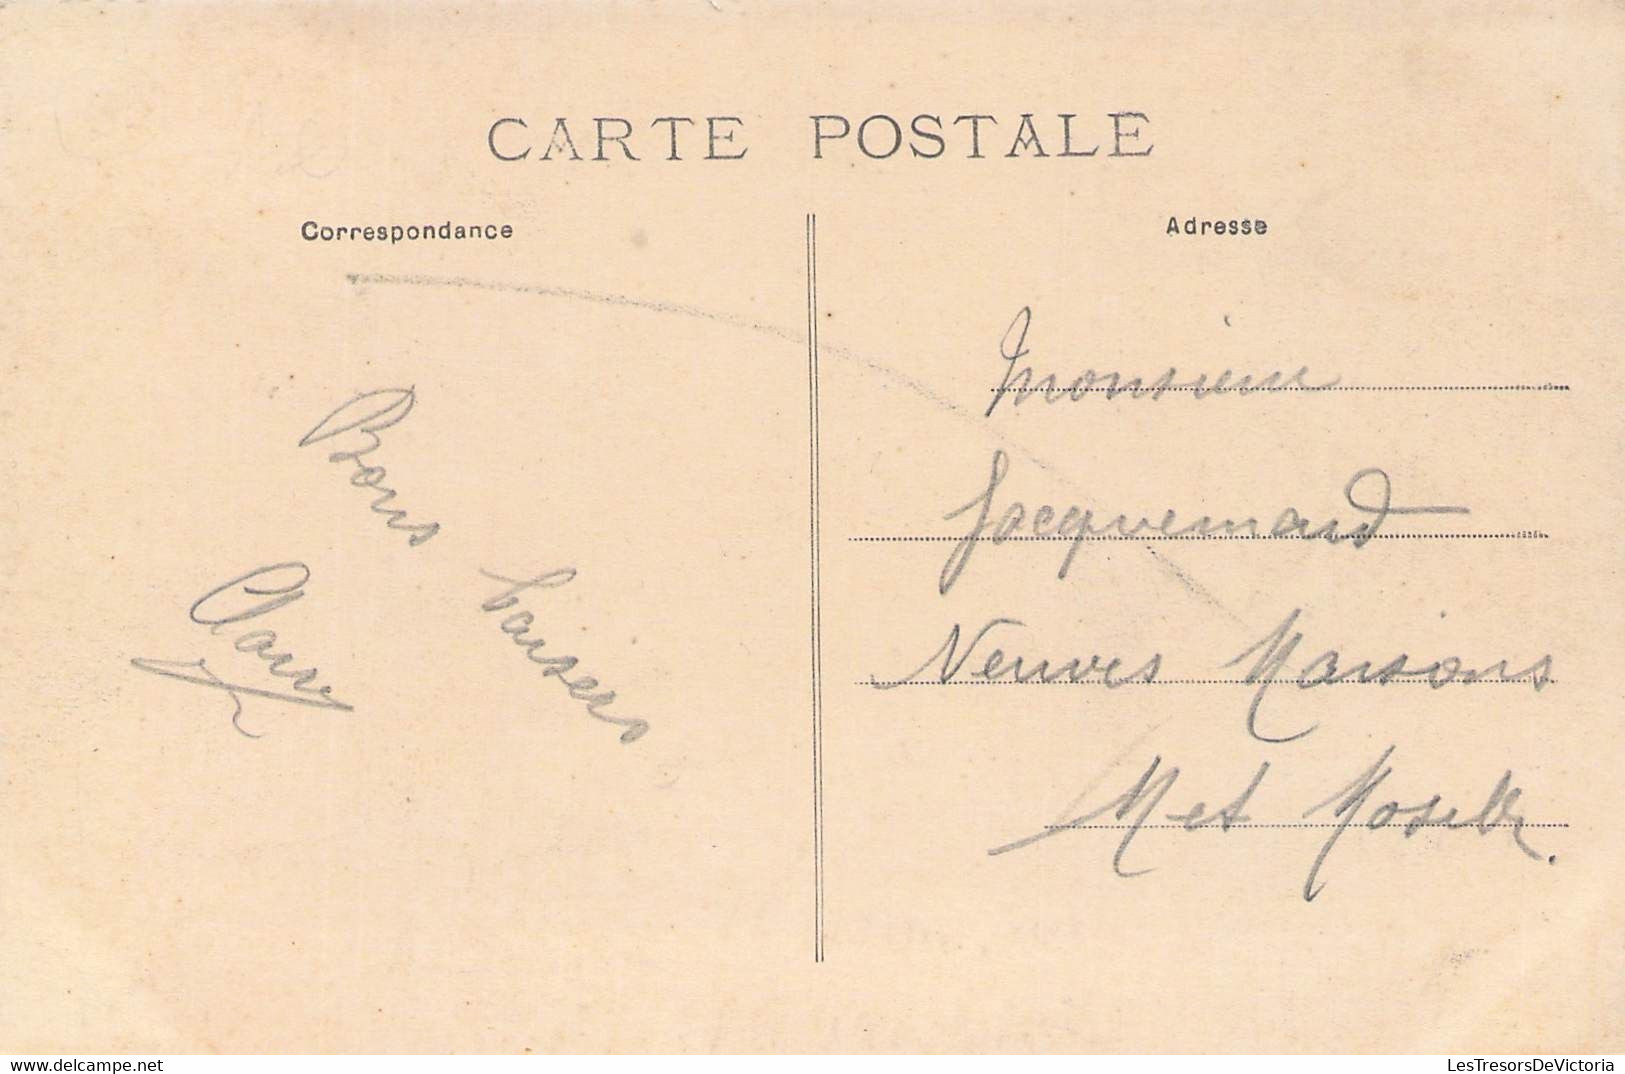 CARTE POSTALE
Correspondance
Adresse
Bons baisers
Claire
Monsieur
Jacquemard
Neuves Maisons
Met Moselle.
delcampe.net
LesTresorsDeVictoria